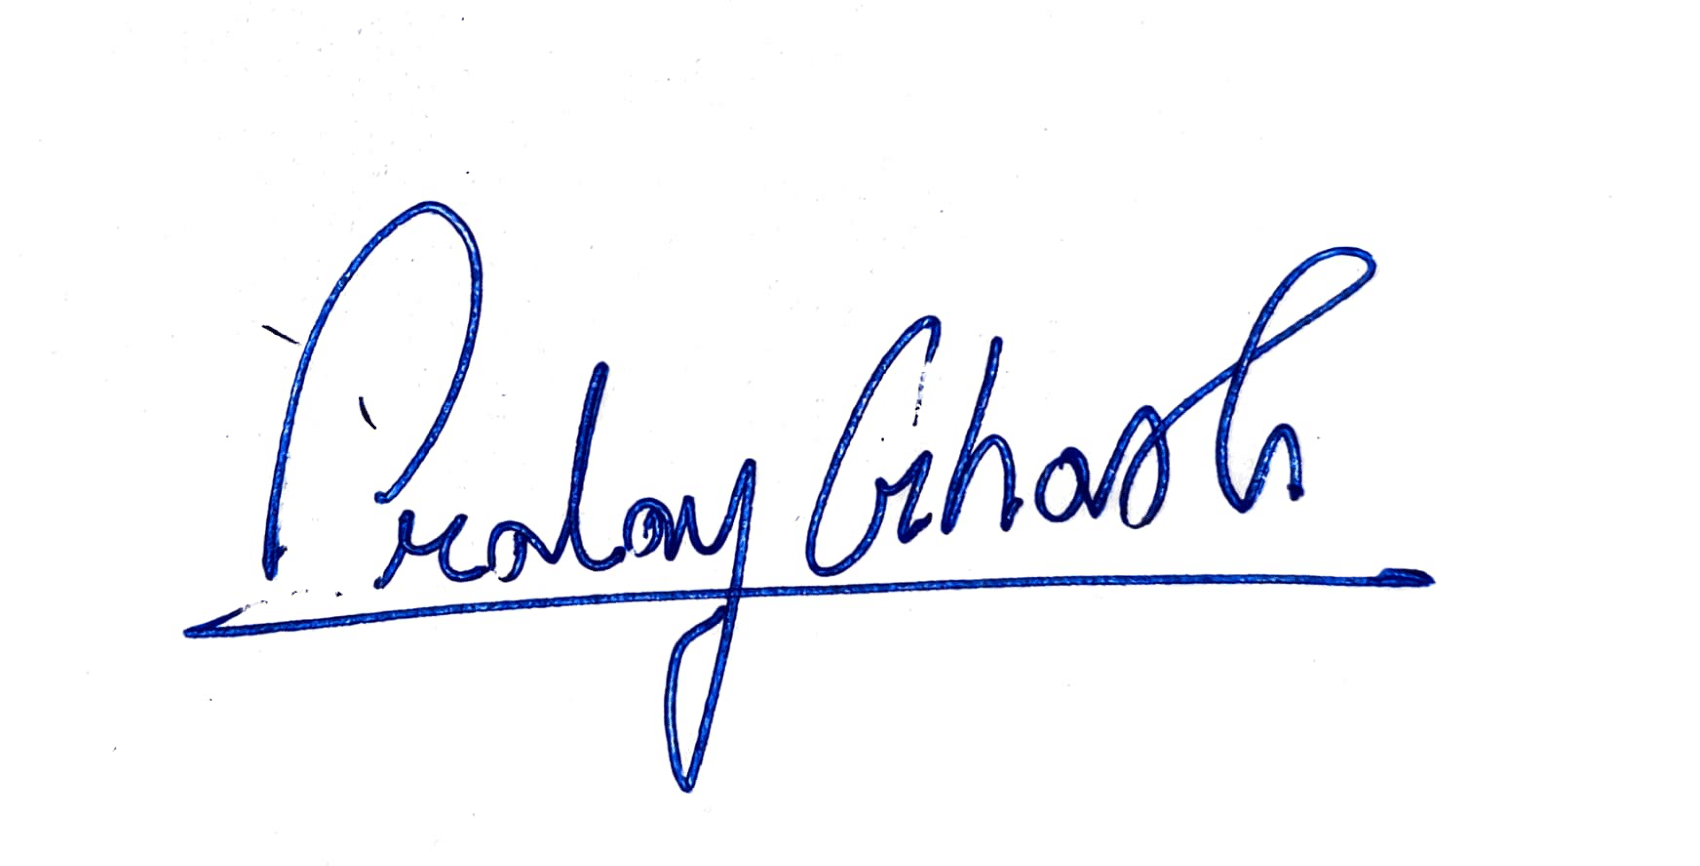 Pralay Ghosh